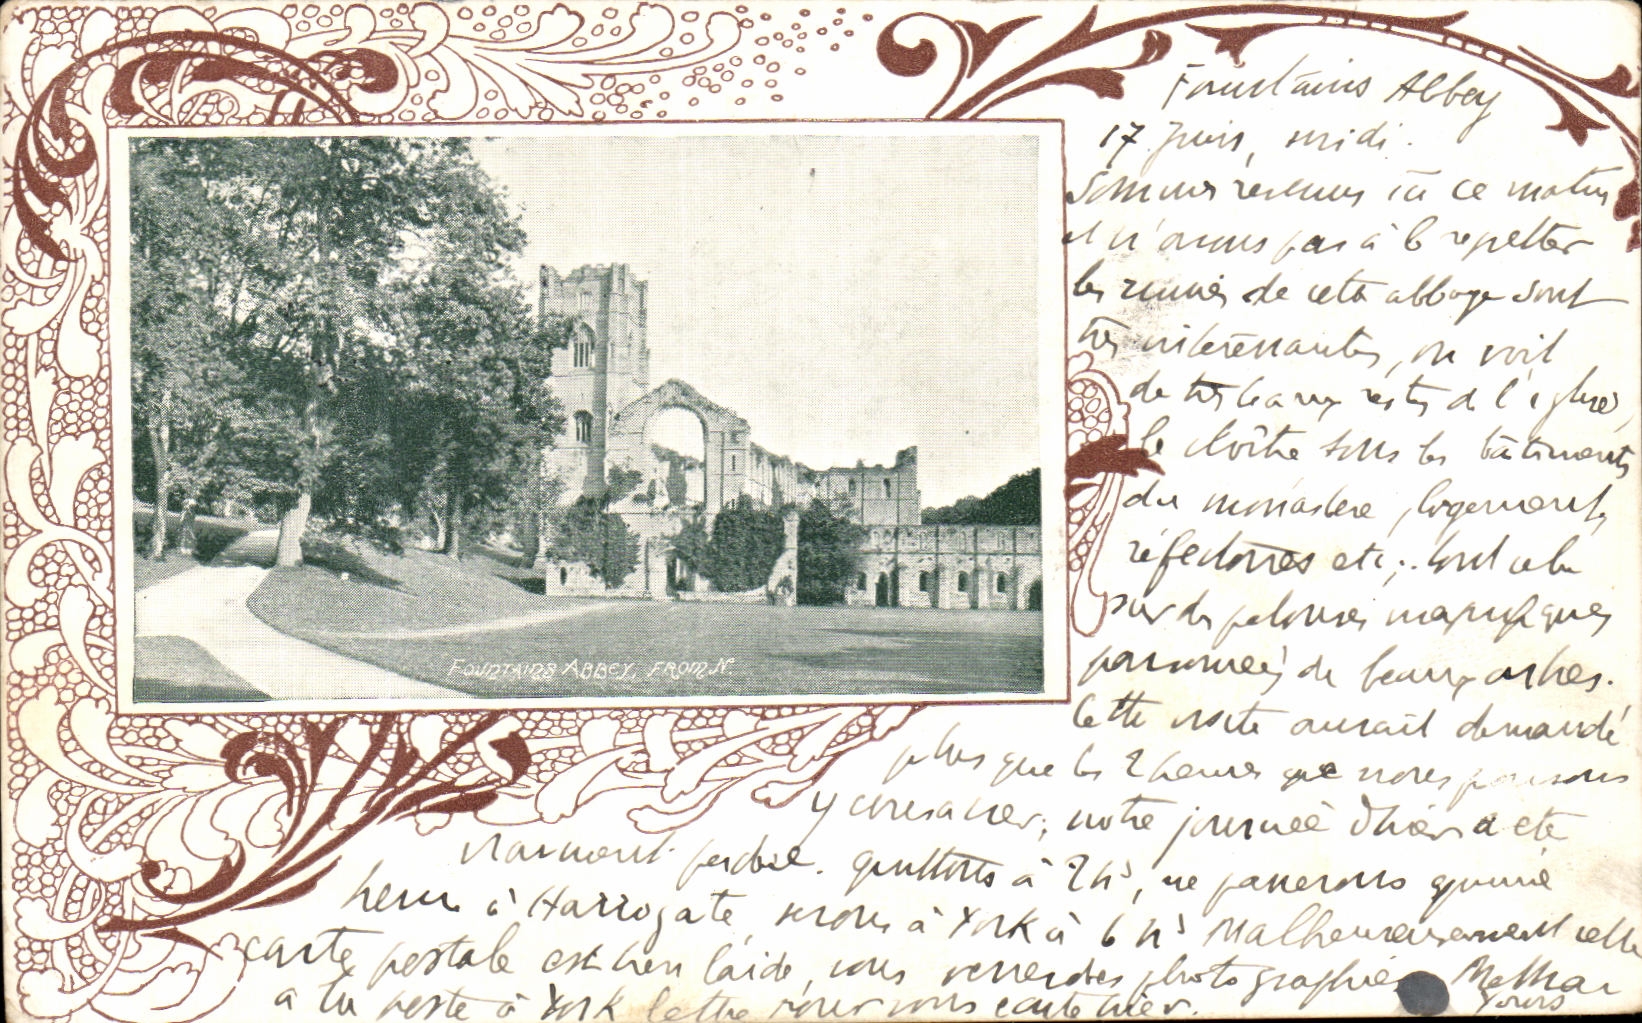 Fountains Abbey
17 Juin, midi.
Sommes venus ici ce matin
et n'avons pas à le regretter
les ruines de cette abbaye sont
très intéressantes, on voit
de très beaux restes de l'église,
le cloître sous les bâtiments
du monastère, logements,
réfectoires etc; tout cela
sur des pelouses magnifiques
parsemées de beaux arbres.
Cette visite aurait demandé
plus que les 2 heures que nous pouvions
y consacrer; notre journée d'hier a été
vraiment perdue. quittons à 2h½, ne passerons qu'une
heure à Harrogate, serons à York à 6 h½ Malheureusement cette
carte postale est bien laide, vous verrez des photographies
à la poste à York lettre pour vous
Yours
FOUNTAINS ABBEY, FROM N.